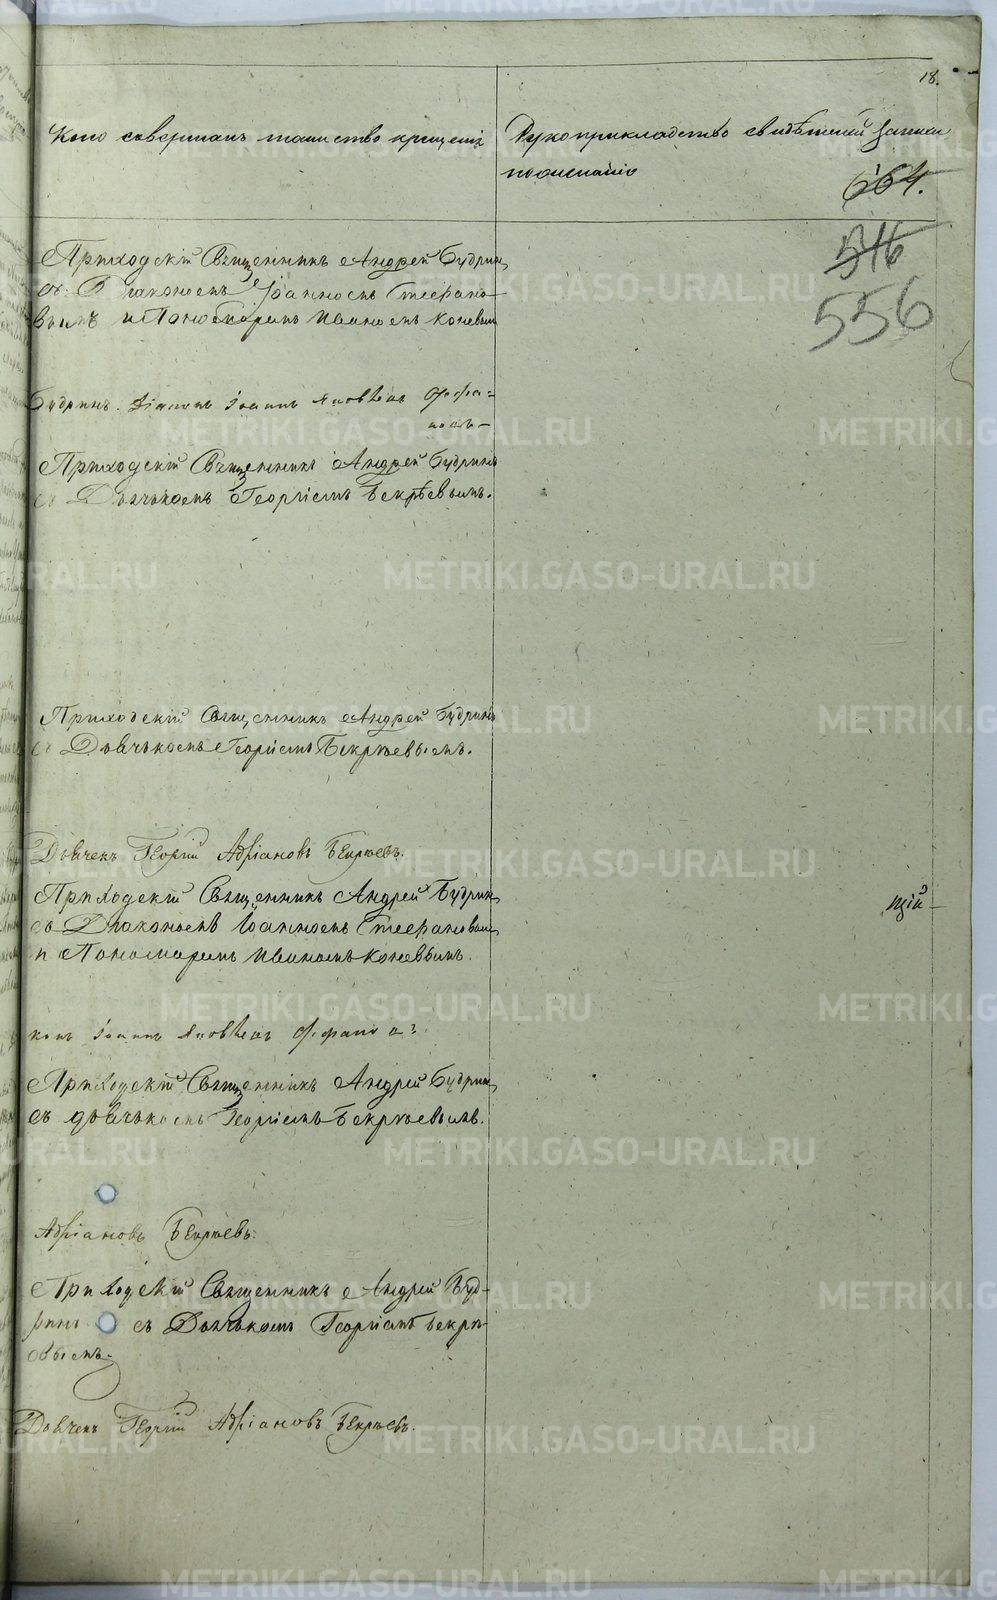 18.
Кто совершалъ таинство крещенія
Рукоприкладство свидѣтелей записи
по желанію
664.
516
556
Приходскій Священникъ Андрей Будринъ
съ Діакономъ Іоанномъ Стефано-
вымъ и Пономаремъ Иваномъ Коневым
Будринъ. Діаконъ Іоаннъ Яковлевъ Стефа=
новъ
Приходскій Священникъ Андрей Будринъ
съ Дьячькомъ Георгіемъ Бекрѣевымъ.
Приходскій Священникъ Андрей Будринъ
съ Дьячькомъ Георгіемъ Бекрѣевымъ.
Дьячекъ Георгій Адріановъ Бекрѣевъ.
Приходскій Священникъ Андрей Будринъ
съ Діакономъ Іоанномъ Стефановым
и Пономаремъ Иваномъ Коневымъ.
щій
конъ Іоаннъ Яковлевъ
Приходскій Священникъ Андрей Будрин
съ дьячькомъ Георгіемъ Бекрѣевымъ.
Адріановъ Бекрѣевъ.
Приходскій Священникъ Андрей Буд-
ринъ съ Дьячькомъ Георгіемъ Бекрѣ-
евымъ.
Дьячекъ Георгій Адріановъ Бекрѣевъ.
METRIKI.GASO-URAL.RU